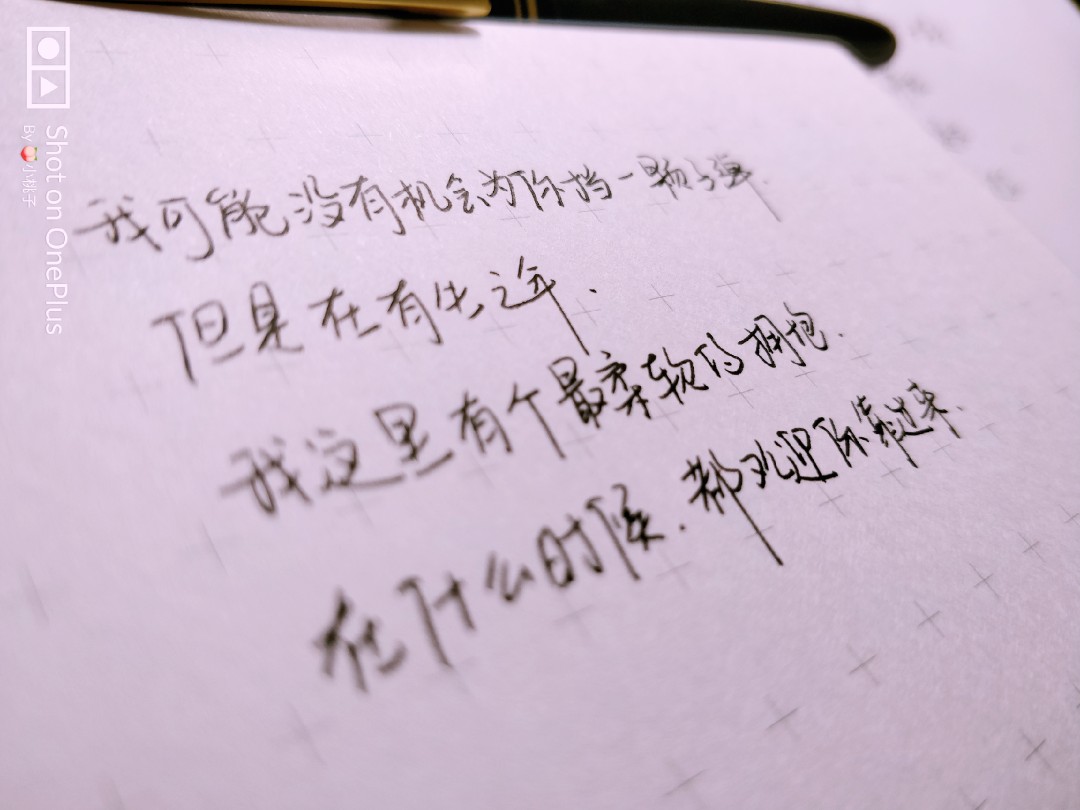 我可能没有机会为你挡一颗子弹.
但是在有生之年.
我这里有个最柔软的拥抱.
在什么时候.都欢迎你靠过来.
Shot on OnePlus
By 🍑小桃子